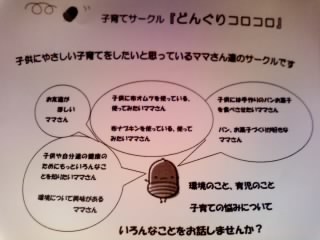 子育てサークル『どんぐりコロコロ』
子供にやさしい子育てをしたいと思っているママさん達のサークルです
お友達が
欲しい
ママさん
子供に布オムツを使っている、
使ってみたいママさん
布ナプキンを使っている、使って
みたいママさん
子供に手作りのパンお菓子
を食べさせたいママさん
パン、お菓子づくりが好きな
ママさん
子供や自分達の健康の
ためにもっといろんなこ
とを知りたいママさん
環境について興味がある
ママさん
環境のこと、育児のこと
子育ての悩みについて
いろんなことをお話しませんか?